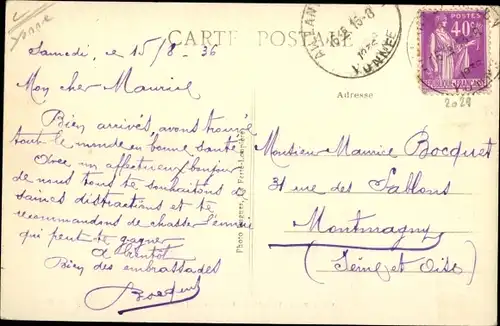 Yonne
CARTE POSTALE
15-8
1936
YONNE
POSTES
40c
2028
Samedi, le 15/8 - 36
Mon cher Maurice
Bien arrivés, avons trouvé
tout le monde en bonne santé.
Avec un affectueux bonjour
de nous tous te souhaitons de
saines distractions et te
recommandons de chasser l'ennui
qui peut te gagner
A bientôt
Bien des embrassades
Bocquet
Adresse
Monsieur Maurice Bocquet
31 rue des Sablons
Montmagny
(Seine et Oise)